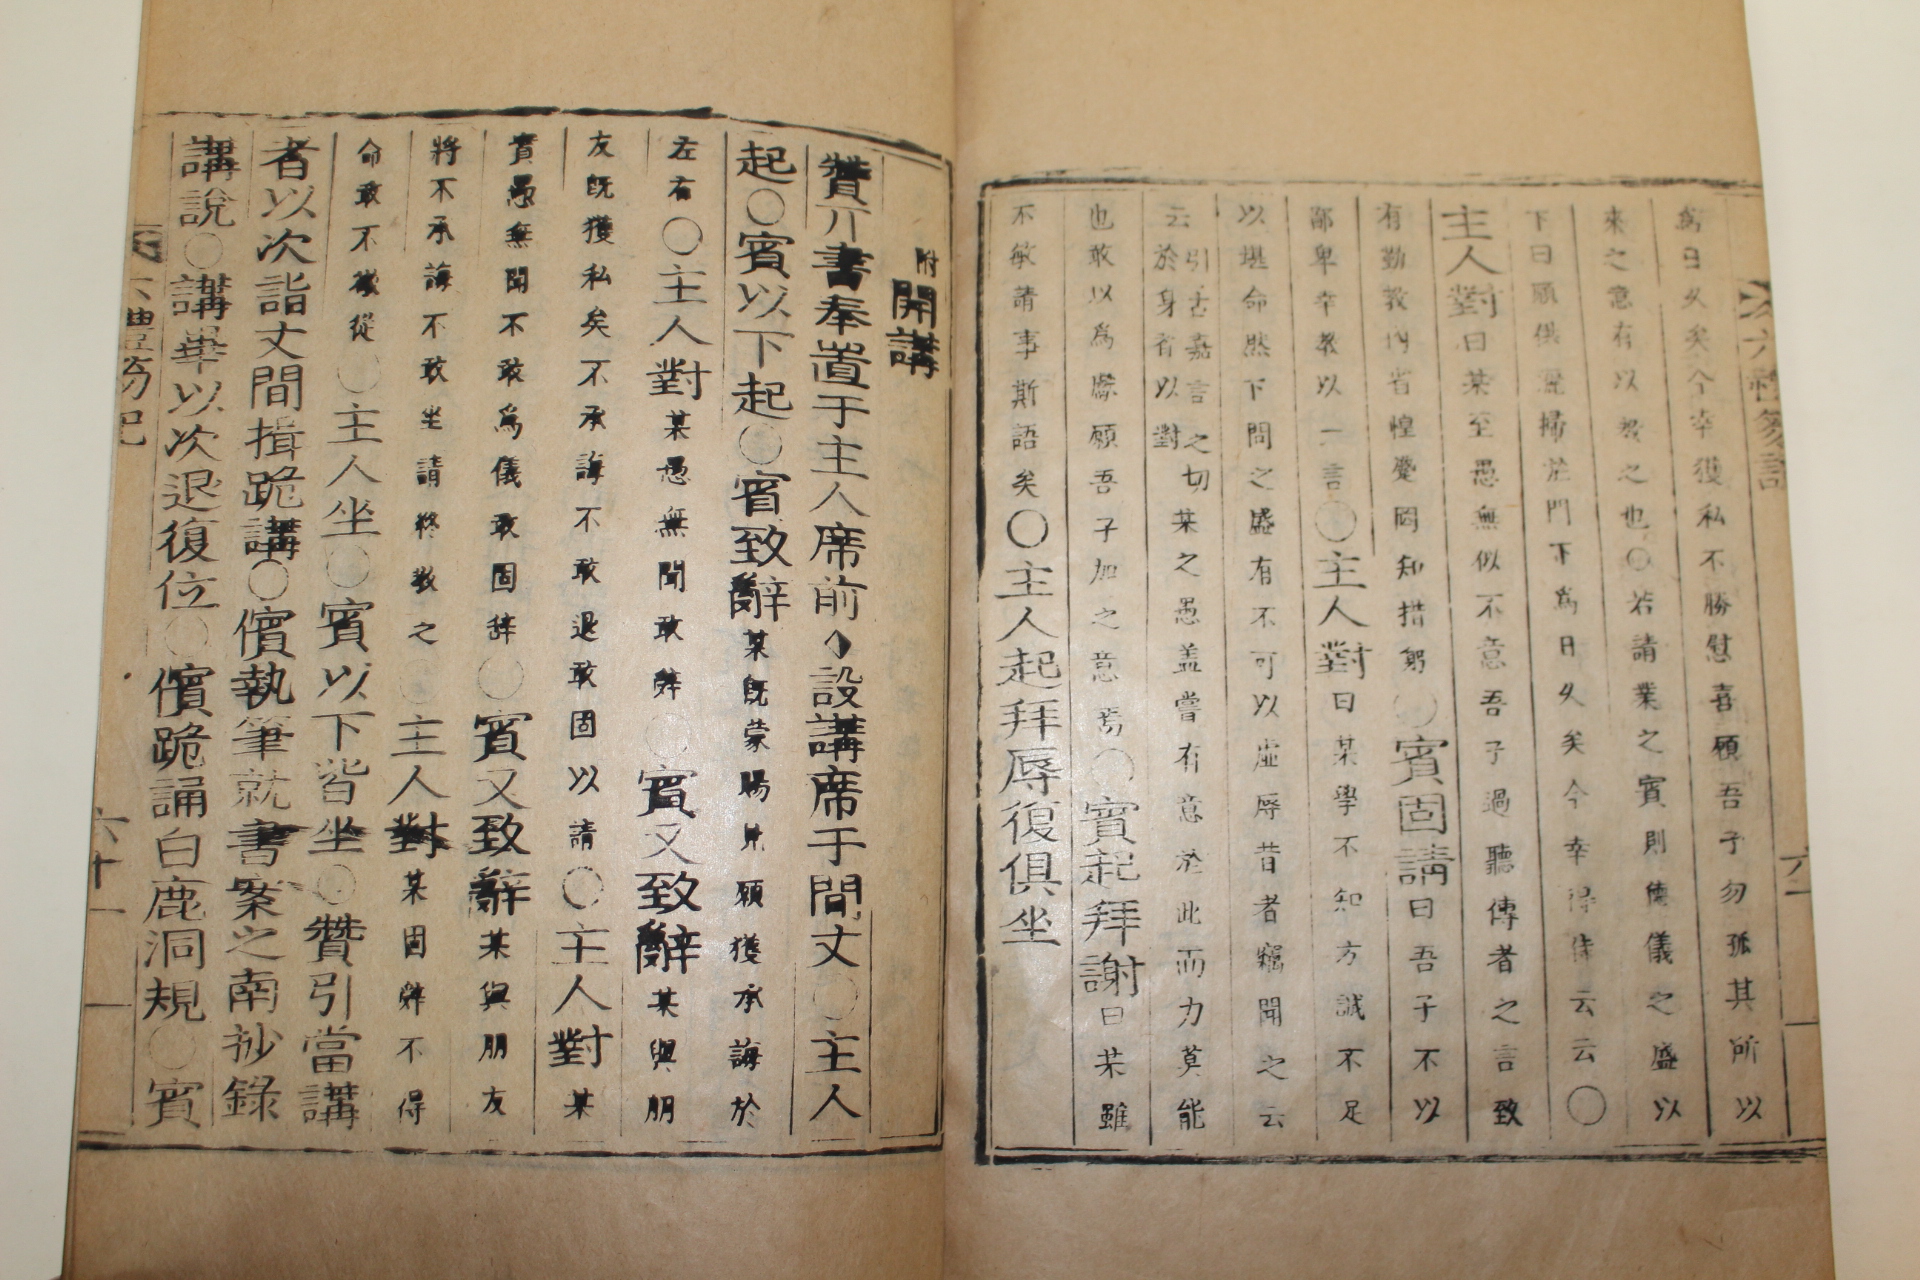 六禮笏記
六十一
爲日久矣今幸獲私不勝慰喜願吾子勿孤其所以
來之意有以敎之也○若請業之賓則德儀之盛以
下曰願供洒掃於門下爲日久矣今幸得侍云云○
主人對曰某至愚無似不意吾子過聽傳者之言致
有勤敎內省惶蹙罔知措躬○賓固請曰吾子不以
鄙卑幸敎以一言○主人對曰某學不知方誠不足
以堪命然下問之盛有不可以虛辱昔者竊聞之云
云引古嘉言之切於身者以對某之愚盖嘗有意於此而力莫能
也敢以爲縢願吾子加之意焉○賓起拜謝曰某雖
不敏請事斯語矣○主人起拜辱復俱坐
附
開講
贊丌書奉置于主人席前○設講席于間丈○主人
起○賓以下起○賓致辭某旣蒙賜見願獲承誨於
左右○主人對某愚無聞敢辭○賓又致辭某與朋
友旣獲私矣不承誨不敢退敢固以請○主人對某
實愚無聞不敢爲儀敢固辞○賓又致辭某與朋友
將不承誨不敢坐請終敎之○主人對某固辞不得
命敢不從○主人坐○賓以下皆坐○贊引當講
者以次詣丈間揖跪講○儐執筆就書案之南抄錄
講說○講畢以次退復位○儐跪誦白鹿洞規○賓
六禮笏記
六十一